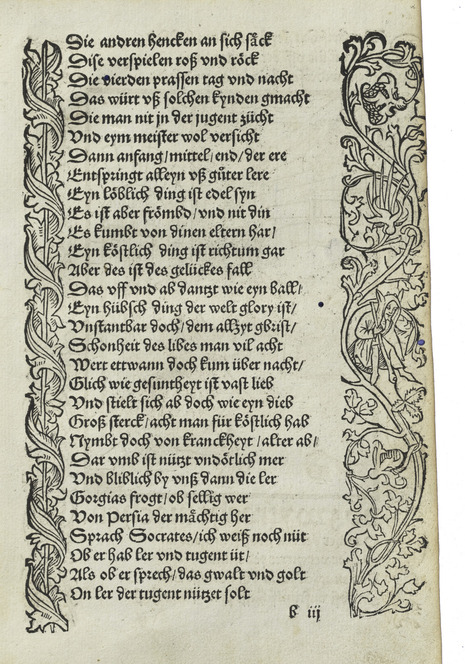 Die andren hencken an sich säck
Dise verspielen roß vnd röck
Die vierden prassen tag vnd nacht
Das würt vß solchen kynden gmacht
Die man nit jn der jugent zücht
Vnd eym meister wol versicht
Dann anfang/mittel/end/der ere
Entspringt alleyn vß güter lere
Eyn löblich ding ist edel syn
Es ist aber frömbd/vnd nit din
Es kumbt von dinen eltern har/
Eyn köstlich ding ist richtum gar
Aber des ist des gelückes fall
Das vff vnd ab dantzt wie eyn ball/
Eyn hübsch ding der welt glory ist/
Vnstantbar doch/dem allzyt gbrist/
Schonheit des libes man vil acht
Wert ettwann doch kum über nacht/
Glich wie gesuntheyt ist vast lieb
Vnd stielt sich ab doch wie eyn dieb
Groß sterck/acht man für köstlich hab
Nymbt doch von kranckheyt/alter ab/
Dar vmb ist nützt vndötlich mer
Vnd bliblich by vnß dann die ler
Gorgias frogt/ob sellig wer
Von Persia der mächtig her
Sprach Socrates/ich weiß noch nüt
Ob er hab ler vnd tugent üt/
Als ob er sprech/das gwalt vnd golt
On ler der tugent nützet solt
b iij